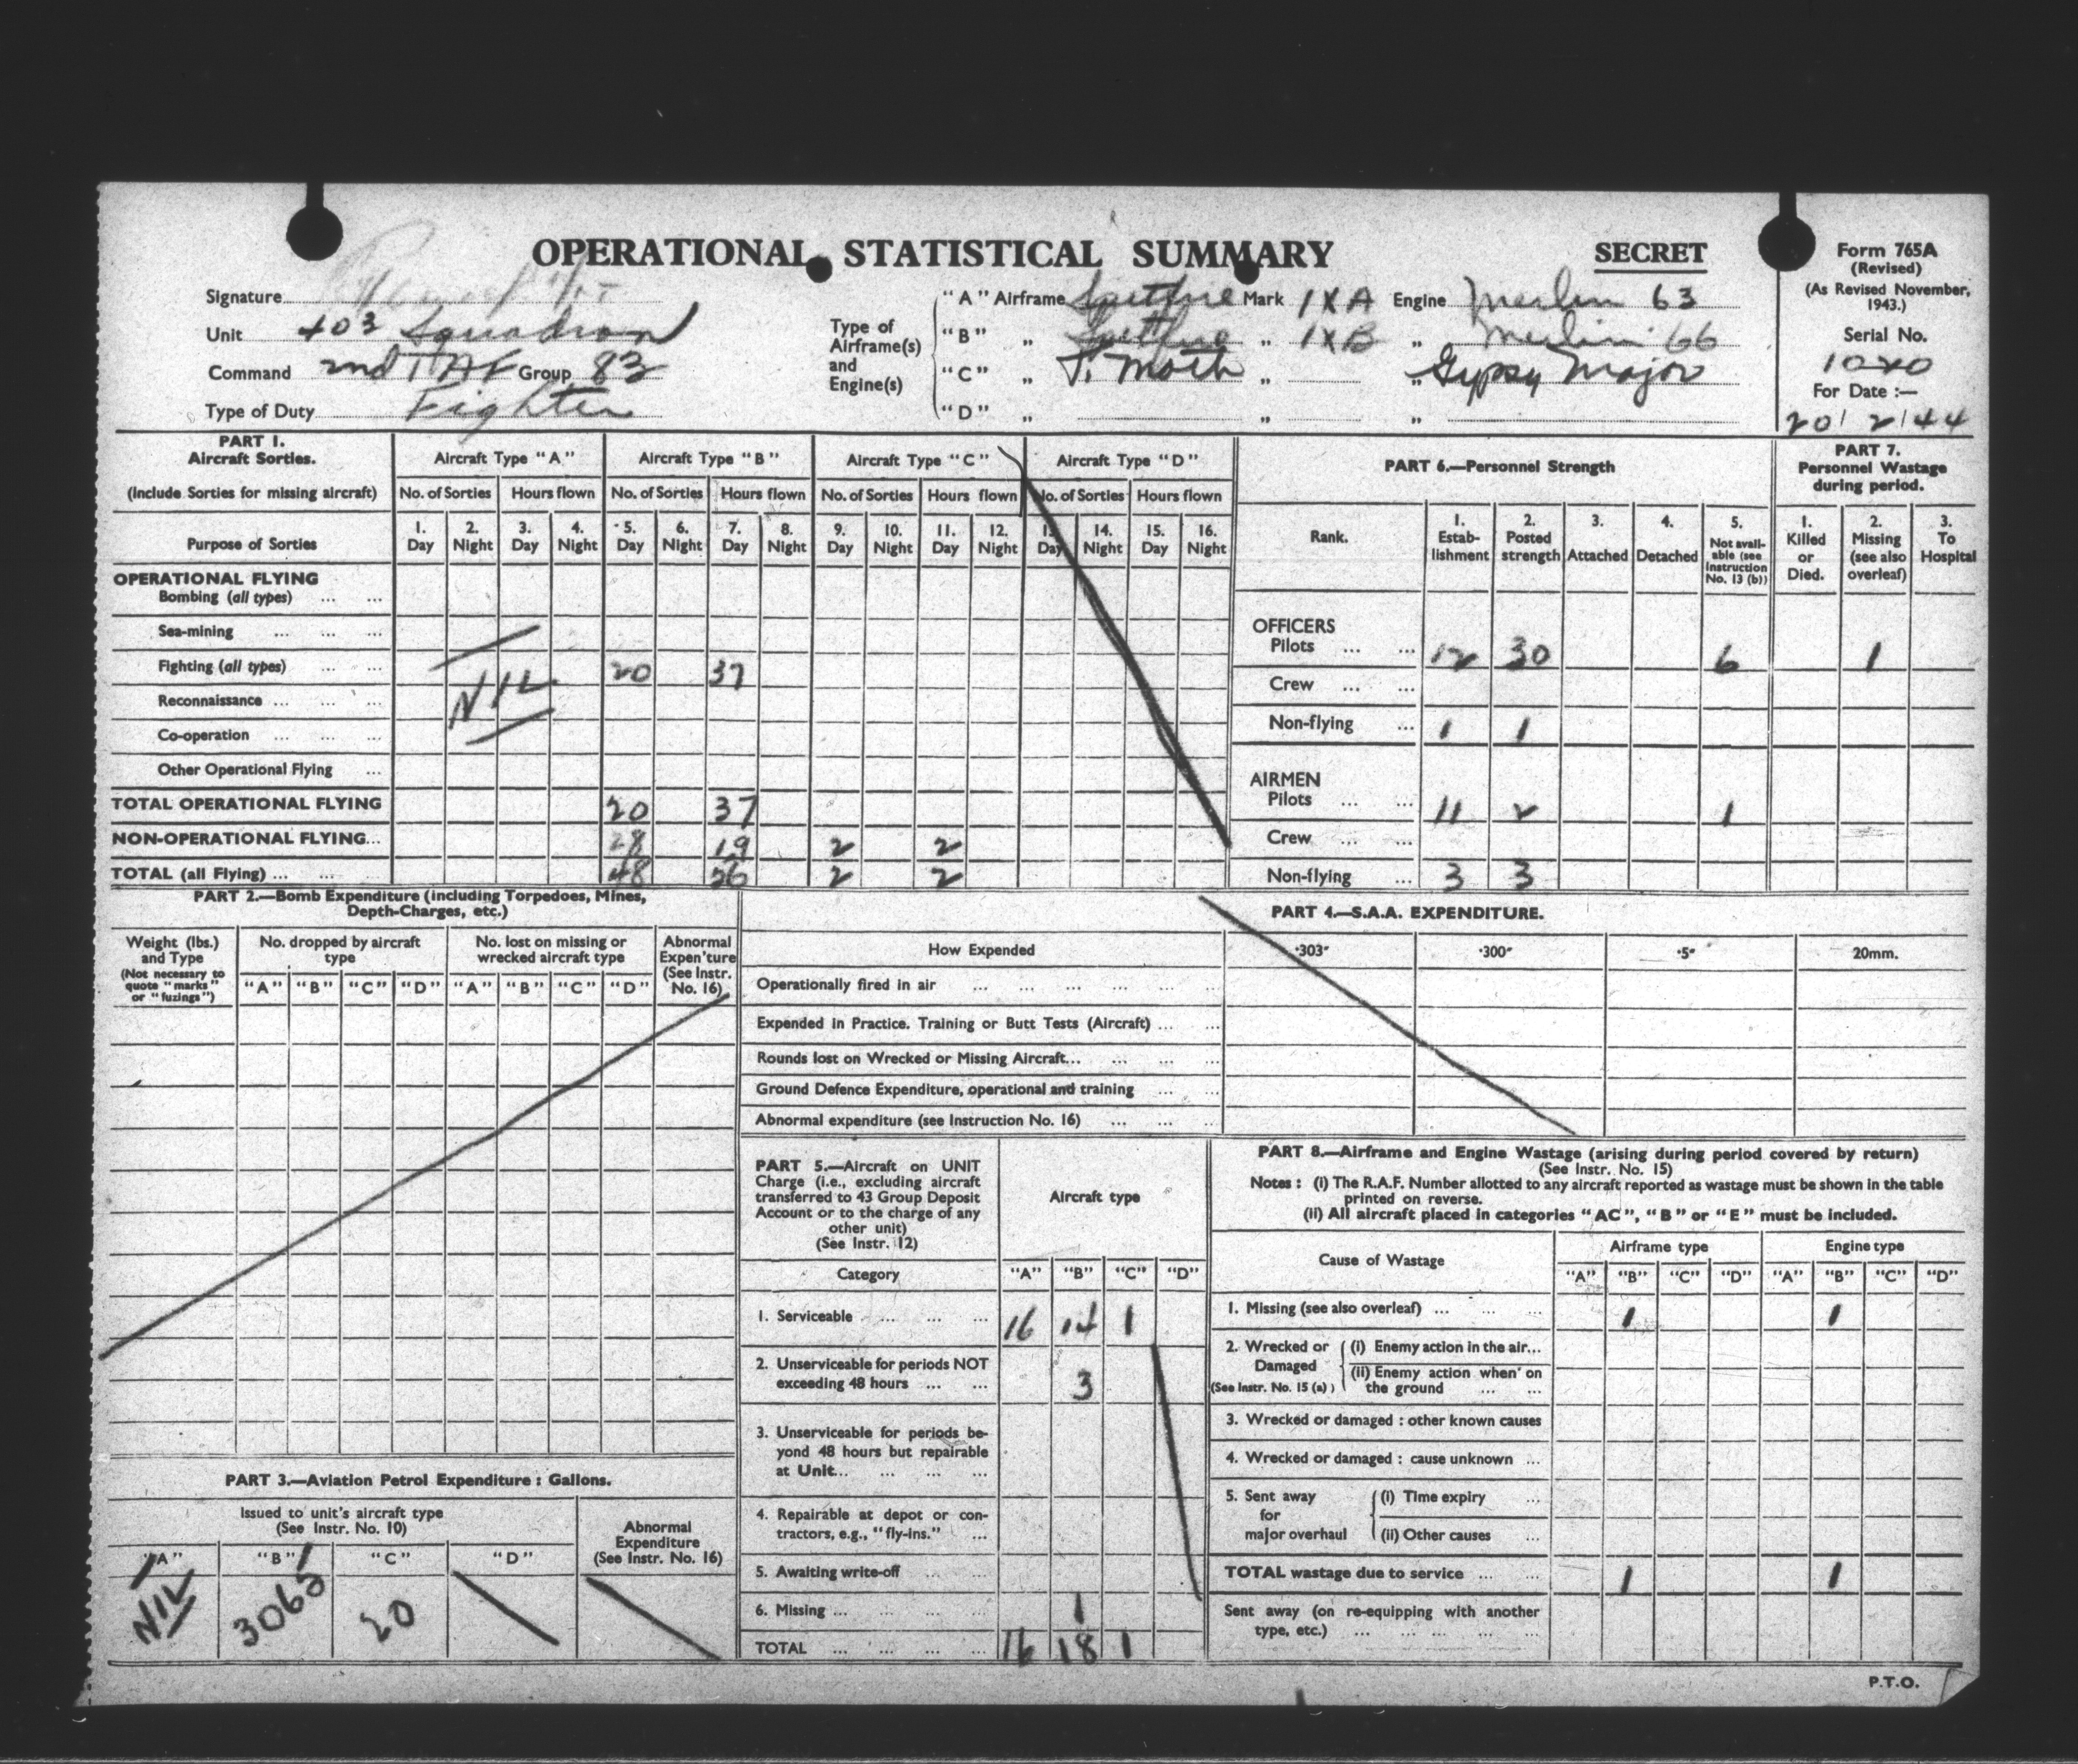 OPERATIONAL STATISTICAL SUMMARY
SECRET
Form 765A
(Revised)
(As Revised November, 1943.)
Signature
Unit 403 Squadron
Command 2nd TAF Group 83
Type of Duty Fighter
Type of Airframe(s) and Engine(s)
"A" Airframe Spitfire Mark IXA Engine Merlin 63
"B" „ Spitfire „ IXB „ Merlin 66
"C" „ T. Moth „ „ Gypsy Major
"D" „ „ „
Serial No.
1020
For Date :—
20/2/44
PART 1.
Aircraft Sorties.
(Include Sorties for missing aircraft)
Aircraft Type "A" Aircraft Type "B" Aircraft Type "C" Aircraft Type "D"
No. of Sorties Hours flown No. of Sorties Hours flown No. of Sorties Hours flown No. of Sorties Hours flown
Purpose of Sorties
1. Day 2. Night 3. Day 4. Night 5. Day 6. Night 7. Day 8. Night 9. Day 10. Night 11. Day 12. Night 13. Day 14. Night 15. Day 16. Night
OPERATIONAL FLYING
Bombing (all types) ... ...
Sea-mining ... ... ...
Fighting (all types) ... ... 20 37
NIL
Reconnaissance ... ... ...
Co-operation ... ... ...
Other Operational Flying ...
TOTAL OPERATIONAL FLYING 20 37
NON-OPERATIONAL FLYING... 28 19 2 2
TOTAL (all Flying) ... ... ... 48 56 2 2
PART 6.—Personnel Strength
Rank.
1. Estab-lishment
2. Posted strength
3. Attached
4. Detached
5. Not avail-able (see Instruction No. 13 (b))
OFFICERS
Pilots ... ... 12 30 6 1
Crew ... ...
Non-flying ... 1 1
AIRMEN
Pilots ... ... 11 2 1
Crew ... ...
Non-flying ... 3 3
PART 7.
Personnel Wastage
during period.
1. Killed or Died.
2. Missing (see also overleaf)
3. To Hospital
PART 2.—Bomb Expenditure (including Torpedoes, Mines,
Depth-Charges, etc.)
Weight (lbs.) and Type
(Not necessary to quote "marks" or "fuzings")
No. dropped by aircraft type
No. lost on missing or wrecked aircraft type
Abnormal Expen'ture (See Instr. No. 16)
"A" "B" "C" "D" "A" "B" "C" "D"
PART 4.—S.A.A. EXPENDITURE.
How Expended ·303" ·300" ·5" 20mm.
Operationally fired in air ... ... ... ... ...
Expended in Practice. Training or Butt Tests (Aircraft) ... ...
Rounds lost on Wrecked or Missing Aircraft... ... ... ...
Ground Defence Expenditure, operational and training ... ...
Abnormal expenditure (see Instruction No. 16) ... ... ...
PART 3.—Aviation Petrol Expenditure : Gallons.
Issued to unit's aircraft type
(See Instr. No. 10)
Abnormal
Expenditure
(See Instr. No. 16)
"A" "B" "C" "D"
NIL 3065 20
PART 5.—Aircraft on UNIT
Charge (i.e., excluding aircraft
transferred to 43 Group Deposit
Account or to the charge of any
other unit)
(See Instr. 12)
Aircraft type
Category "A" "B" "C" "D"
1. Serviceable ... ... ... 16 14 1
2. Unserviceable for periods NOT
exceeding 48 hours ... ... 3
3. Unserviceable for periods be-
yond 48 hours but repairable
at Unit... ... ... ...
4. Repairable at depot or con-
tractors, e.g., "fly-ins." ...
5. Awaiting write-off ... ...
6. Missing ... ... ... ... 1
TOTAL ... ... ... ... 16 18 1
PART 8.—Airframe and Engine Wastage (arising during period covered by return)
(See Instr. No. 15)
Notes : (i) The R.A.F. Number allotted to any aircraft reported as wastage must be shown in the table
printed on reverse.
(ii) All aircraft placed in categories "AC", "B" or "E" must be included.
Cause of Wastage Airframe type Engine type
"A" "B" "C" "D" "A" "B" "C" "D"
1. Missing (see also overleaf) ... ... ... 1 1
2. Wrecked or Damaged (See Instr. No. 15 (a) )
(i) Enemy action in the air...
(ii) Enemy action when on
the ground ... ...
3. Wrecked or damaged : other known causes
4. Wrecked or damaged : cause unknown ...
5. Sent away for major overhaul
(i) Time expiry ...
(ii) Other causes ...
TOTAL wastage due to service ... ... 1 1
Sent away (on re-equipping with another
type, etc.) ... ... ... ... ...
P.T.O.